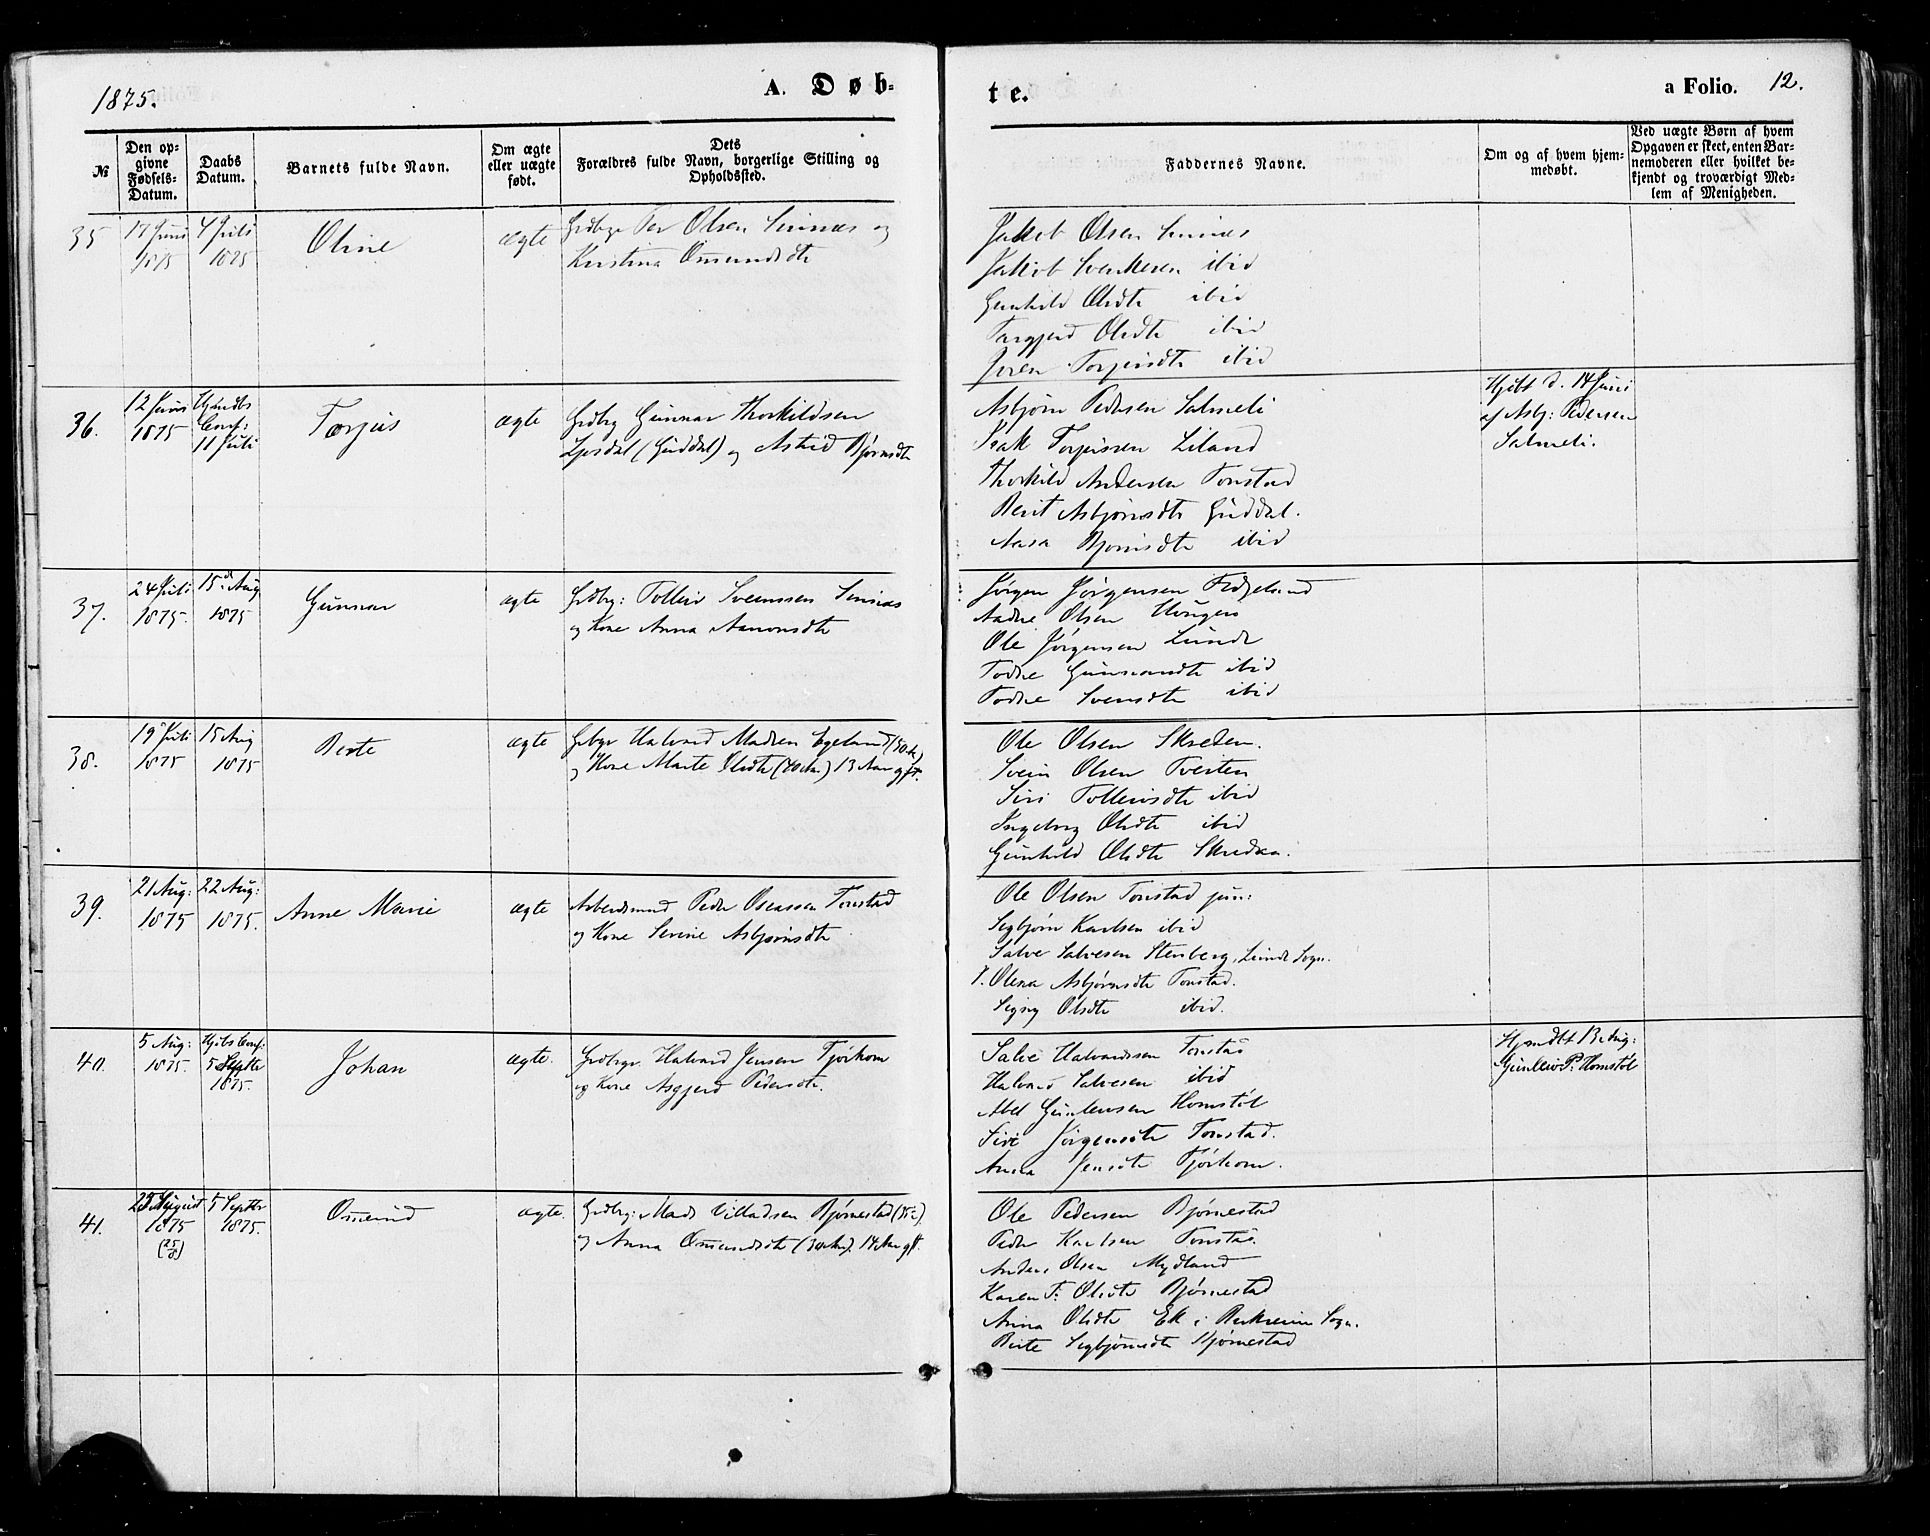 1875.
A. Døb-
te.
a Folio. 12.
№
Den op-
givne
Fødsels-
Datum.
Daabs
Datum.
Barnets fulde Navn.
Om ægte
eller uægte
født.
Dets
Forældres fulde Navn, borgerlige Stilling og
Opholdssted.
Faddernes Navne.
Om og af hvem hjem-
medøbt.
Ved uægte Børn af hvem
Opgaven er skeet, enten Bar-
nemoderen eller hvilket be-
kjendt og troværdigt Med-
lem af Menigheden.
35
17 Juni
1875
4 Juli
1875
Oline
ægte
Grdbgr Per Olsen Sinnæs og
Kristina Omundsdt
Jakob Olsen Sinnæs
Jakob Svenksen ibid
Gunhild Olsdt ibid
Torgjerd Olsdt ibid
Joren Torjusdt ibid
36.
12 Juni
1875
Hjmdbs
Conf:
11 Juli
Torjus
ægte
Grdbrg Gunnar Thorkildsen
Josdal (Guddal) og Astrid Bjørnsdt
Asbjørn Pedersen Salmeli
Isak Torjussen Liland
Thorkild Andersen Tonstad
Berit Asbjørnsdt Guddal.
Aasa Bjørnsdt ibid
Hjdbt d. 14 Juni
af Asbj: Pedersen
Salmeli.
37.
24 Juli
1875.
15 Aug
1875
Gunnar
ægte
Grdbrg: Tolleiv Sveinssen Sinnæs
og Kone Anna Aanonsdt
Jørgen Jørgensen Fidjelund
Aadne Olsen Haugen
Ole Jørgensen Lunde
Todne Gunnarsdt ibid
Todne Svensdt ibid
38.
19 Juli
1875
15 Aug
1875
Berte
ægte
Gbgr Halvard Madsen Egeland (50 A.)
og Kone Marte Olsdt (40 Aar.) 13 Aar gft.
Ole Olsen Skreden.
Svein Olsen Tveiten
Siri Tolleivsdt ibid
Ingeborg Olsdt ibid
Gunhild Olsdt Skreden.
39.
21 Aug:
1875
22 Aug:
1875.
Anne Marie
ægte
Arbeidsmand Peder Oseassen Tonstad
og Kone Serine Asbjørnsdt
Ole Olsen Tonstad jun:
Sigbjørn Karlsen ibid
Salve Salvesen Stenberg, Lunde Sogn.
Olena Asbjørnsdt Tonstad.
Signy Olsdt ibid.
40.
5 Aug:
1875.
Hjdbs Conf:
5 Septbr
1875.
Johan
ægte.
Grdbrgr Halvard Jensen Tjørhom
og Kone Asgjerd Pedersdt.
Salve Halvardssen Tonstad
Halvard Salvesen ibid
Abel Gunleivsen Homstøl
Siri Jørgensdt Tonstad.
Anna Jensdt Tjørhom.
Gunleiv P: Homstøl
41.
25 August
1875
(25/8)
5 Septbr
1875.
Omund
ægte.
Grdbrg: Mads Villadsen Bjørnestad
og Anna Omundsdt (30 Aar). 14 Aar gft.
Ole Pedersen Bjørnestad
Peder Karlsen Tonstad.
Anders Olsen Mydland
Karen T: Olsdt Bjørnestad
Anna Olsdt Ek i Birkreim Sogn.
Berte Sigbjørnsdt Bjørnestad